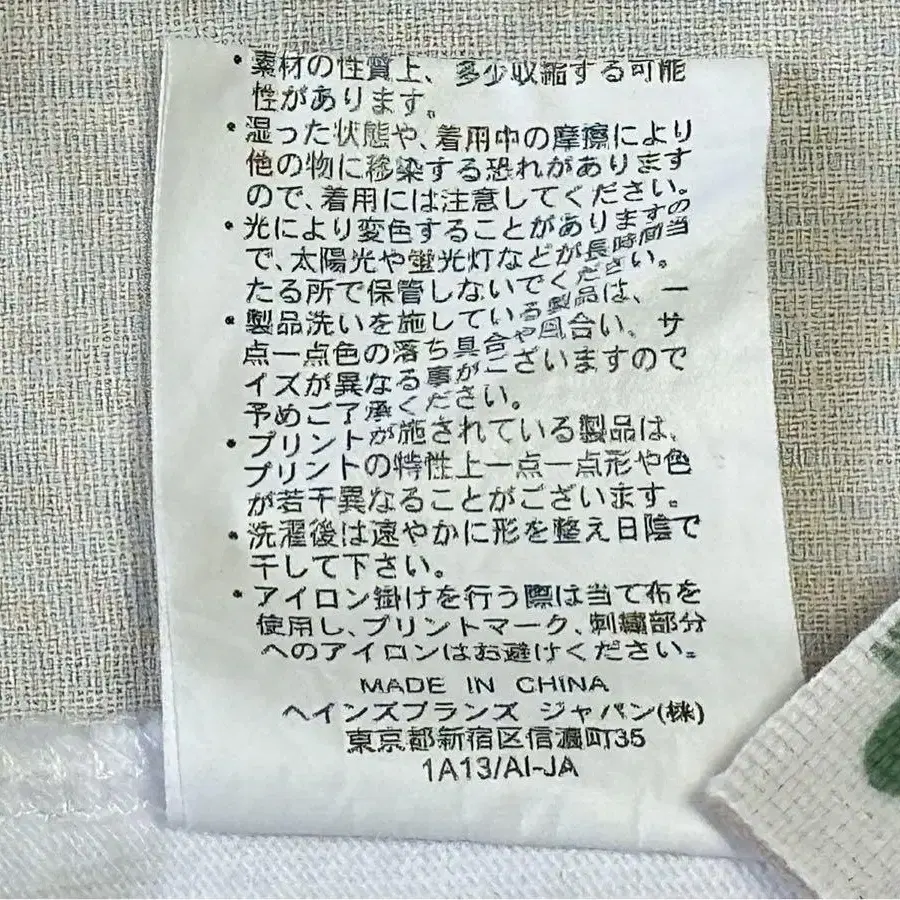 ・素材の性質上、多少収縮する可能
性があります。
・湿った状態や、着用中の摩擦により
他の物に移染する恐れがあります
ので、着用には注意してください。
・光により変色することがありますの
で、太陽光や蛍光灯などが長時間当
たる所で保管しないでください。
・製品洗いを施している製品は、一
点一点色の落ち具合や風合い、サ
イズが異なる事がございますので
予めご了承ください。
・プリントが施されている製品は、
プリントの特性上一点一点形や色
が若干異なることがございます。
・洗濯後は速やかに形を整え日陰で
干して下さい。
・アイロン掛けを行う際は当て布を
使用し、プリントマーク、刺繍部分
へのアイロンはお避けください。
MADE IN CHINA
ヘインズブランズ ジャパン(株)
東京都新宿区信濃町35
1A13/AI-JA